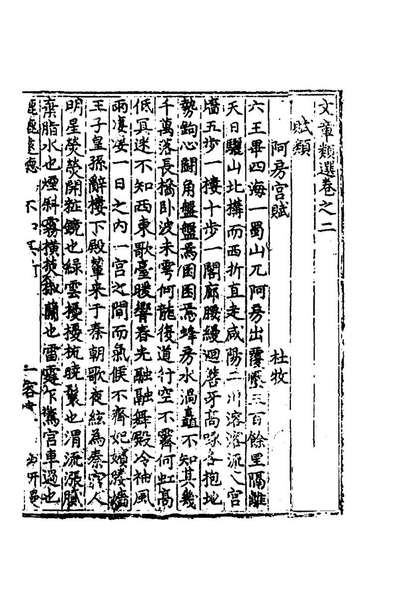 文章類選卷之二
賦類
阿房宮賦 杜牧
六王畢四海一蜀山兀阿房出覆壓三百餘里隔離
天日驪山北搆而西折直走咸陽二川溶溶流入宮
墻五步一樓十步一閣廊腰縵廻簷牙高啄各抱地
勢鉤心鬪角盤盤焉囷囷焉蜂房水渦矗不知其幾
千萬落長橋卧波未雲何龍復道行空不霽何虹高
低冥迷不知西東歌臺暖響春光融融舞殿冷袖風
雨凄凄一日之內一宮之間而氣候不齊妃嬪媵嬙
王子皇孫辭樓下殿輦来于秦朝歌夜絃為秦宮人
明星熒熒開粧鏡也綠雲擾擾梳曉鬟也渭流漲膩
棄脂水也煙斜霧橫焚椒蘭也雷霆乍驚宮車過也
轆轆遠聽